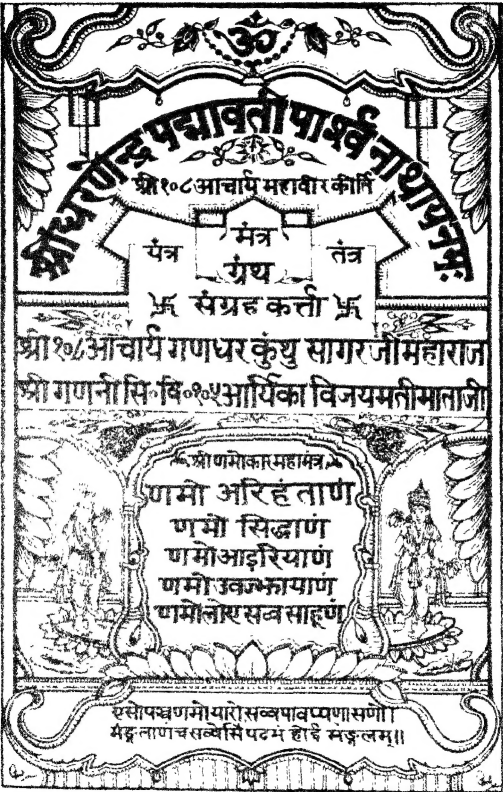 ॐ
श्री धरणेन्द्र पद्मावती पार्श्व नाथाय नमः
श्री १०८ आचार्य महावीर कीर्ति
यंत्र मंत्र तंत्र
ग्रंथ
卐 संग्रह कर्त्ता 卐
श्री १०८ आचार्य गणधर कुंथु सागर जी महाराज
श्री गणनी सि॰ वि॰ १०५ आर्यिका विजयमती माताजी
श्री णमोकार महामंत्र
णमो अरिहंताणं
णमो सिद्धाणं
णमो आइरियाणं
णमो उवज्झायाणं
णमो लोए सव्व साहूणं
एसो पञ्च णमोयारो सव्व पावप्पणासणो।
मङ्गलाणं च सव्वेसिं पढमं होई मङ्गलम्॥